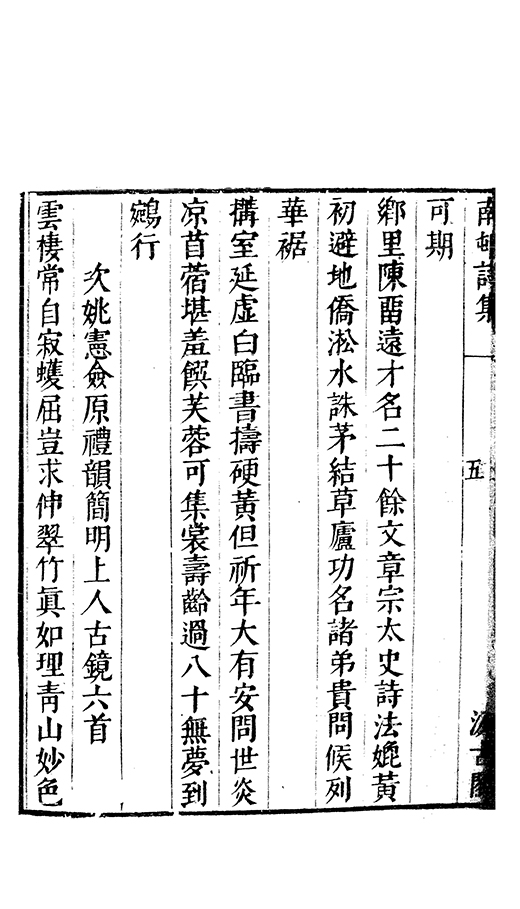 南邨詩集 五 汲古閣
可期
鄉里陳畱遠才名二十餘文章宗太史詩法媲黃
初避地僑淞水誅茅結草廬功名諸弟貴問候列
華裾
搆室延虛白臨書擣硬黃但祈年大有安問世炎
凉苜蓿堪羞饌芙蓉可集裳壽齡過八十無夢到
鵷行
次姚憲僉原禮韻簡明上人古鏡六首
雲棲常自寂蠖屈豈求伸翠竹眞如理靑山妙色